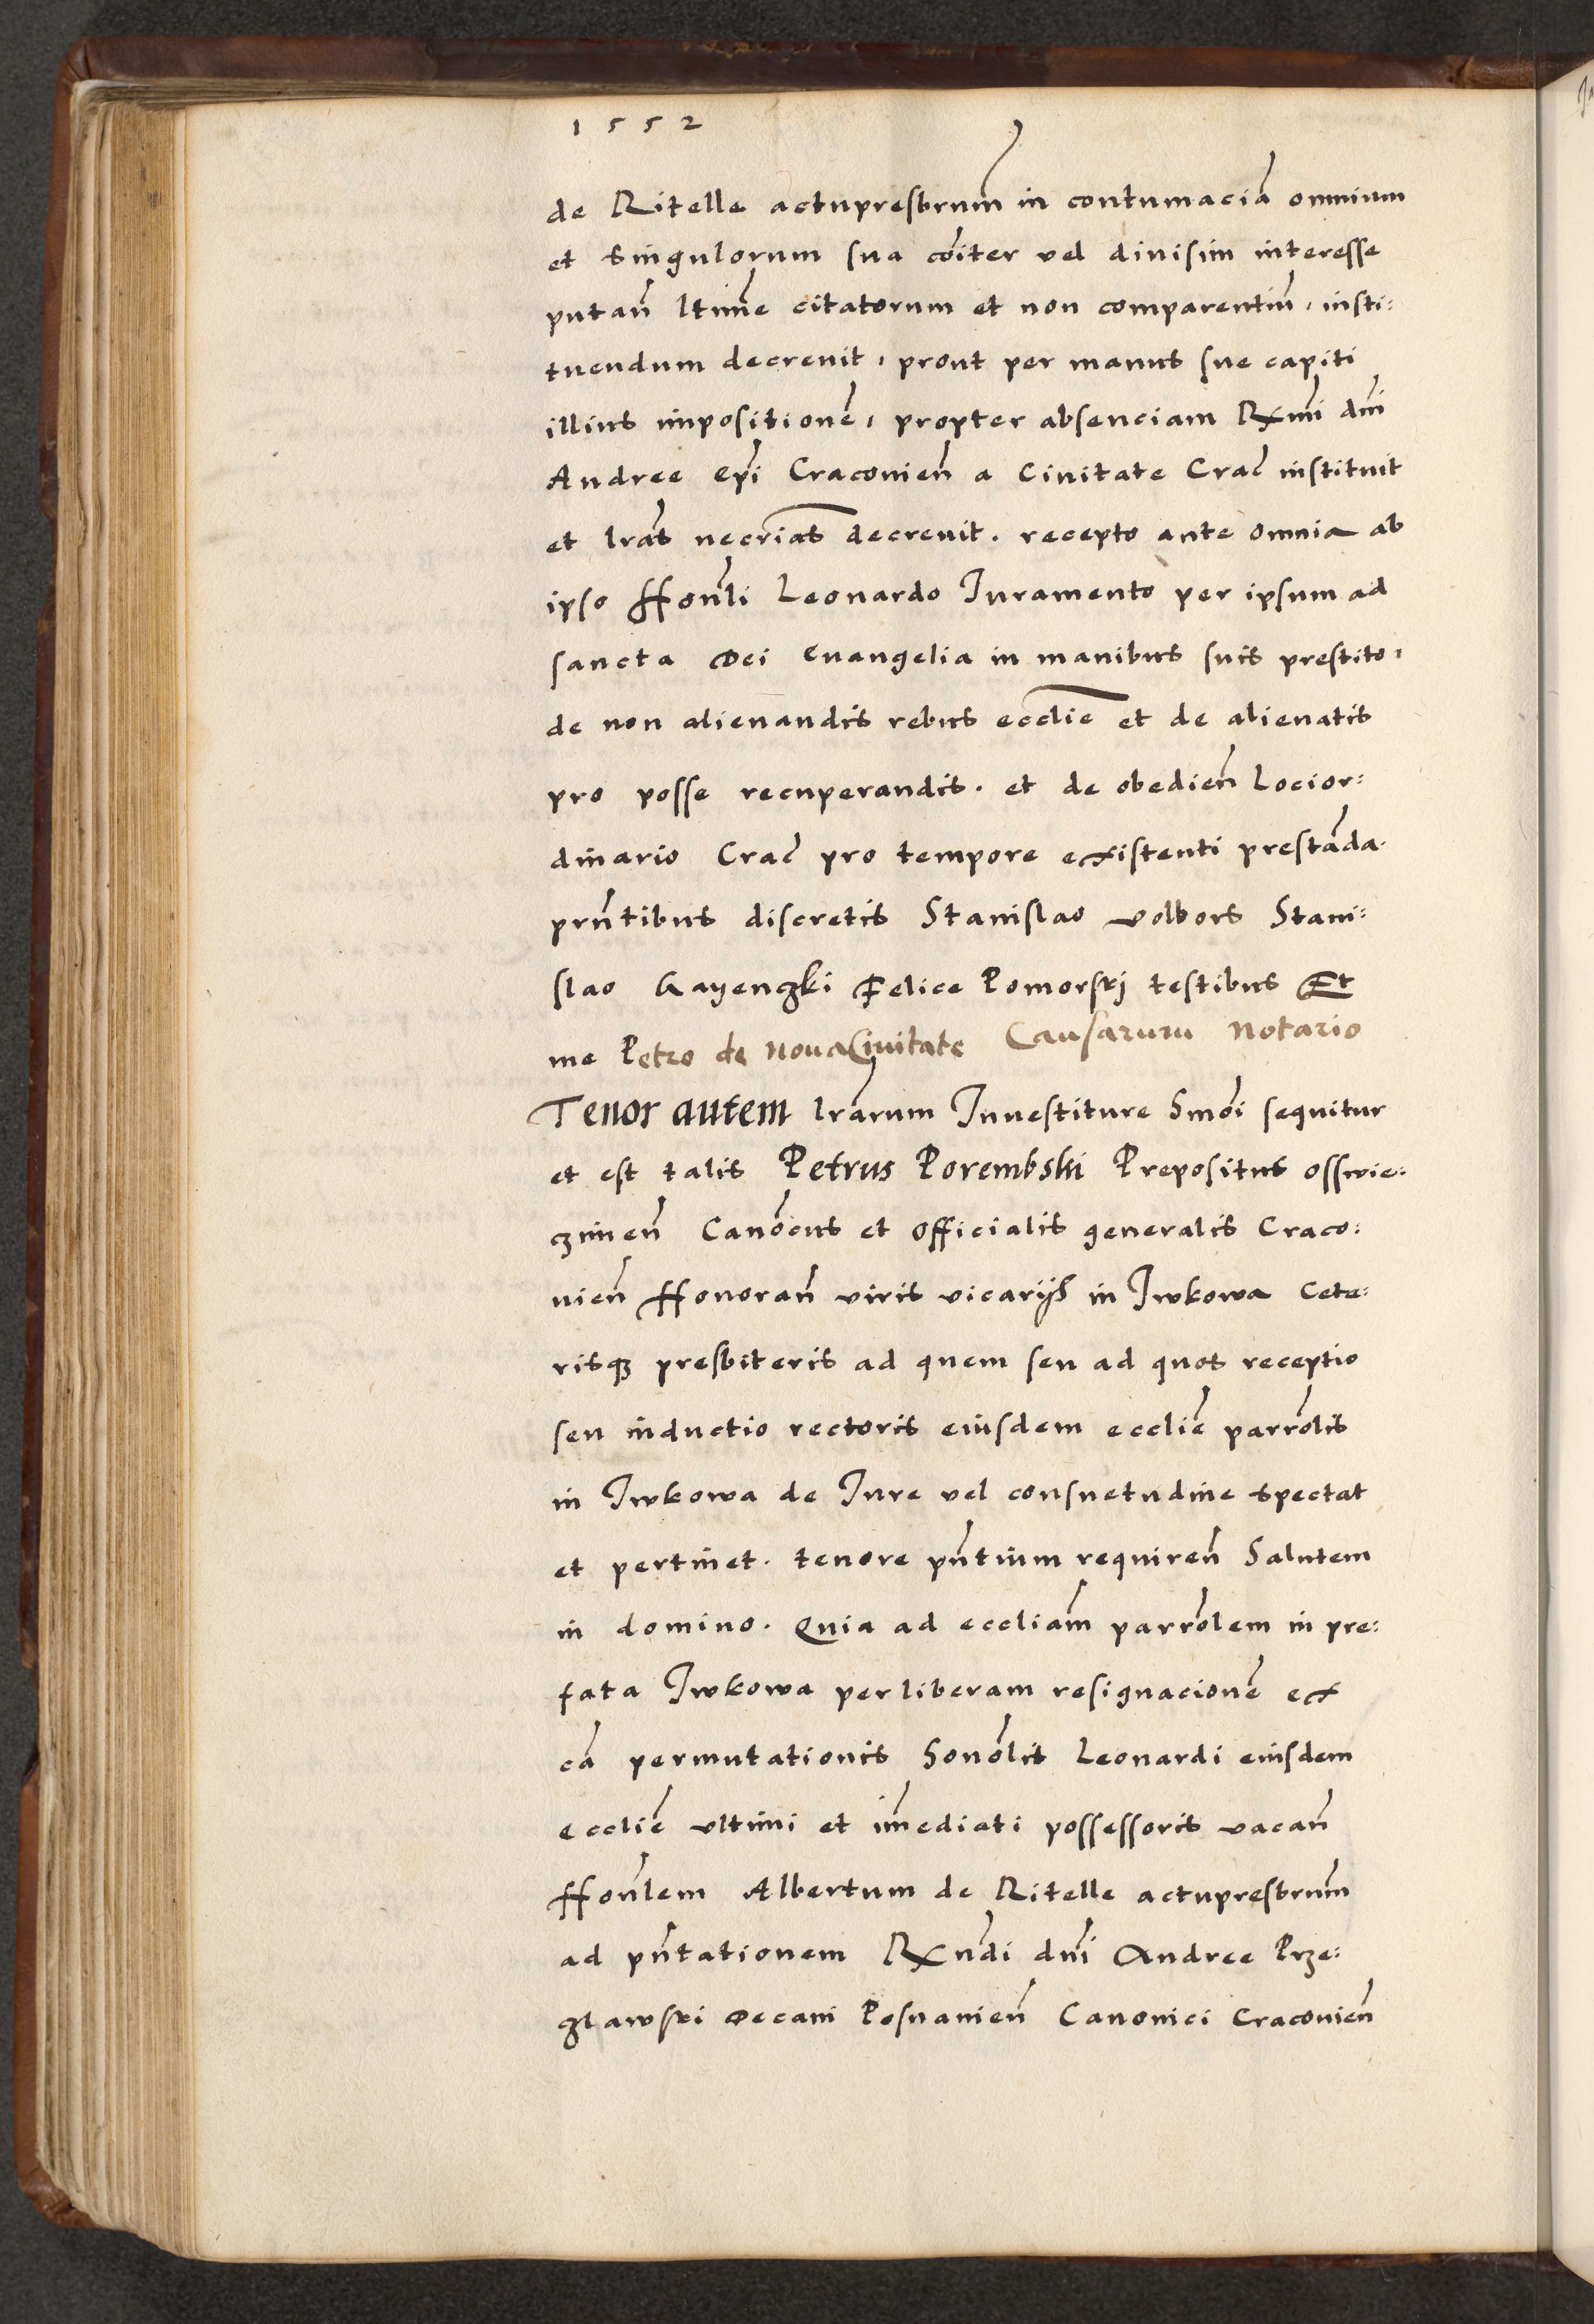 1552
de Ritelle actupresbrum̃ in contumaciã omnium
et singulorum sua cõiter vel divisim interesse
putañ ltim̃e citatorum et non comparentiũ, insti:
tuendum decrevit, prout per manus sue capiti
illius impositionẽ, propter absenciam Rxm̃i dñi
Andree Ep̃i Craconieñ a Civitate Crac̃ instituit
et lrãs necriãs decrevit. recepto ante omnia ab
ipso Hoñli Leonardo Juramento per ipsum ad
sancta Dei Evangelia in manibus suis prestito,
de non alienandis rebus ecclie͂ et de alienatis
pro posse recuperandis. et de obedieñ Locior:
dinario Crac̃ pro tempore existenti prestãda.
prñtibus discretis Stanislao volbors Stani:
slao Gayenczki Felice Pomorskj testibus Et
me Petro de NovaCivitate Causarum Notario
Tenor autem lrãrum Investiture Smõi sequitur
et est talis Petrus Porembski Prepositus osswie:
czimeñ Canõcus et officialis generalis Craco:
vieñ Honorañ viris vicarijs in Iwkowa Cete:
risqz presbiteris ad quem seu ad quos receptio
seu inductio rectoris eiusdem ecclie͂ parrõlis
in Iwkowa de Jure vel consuetudine spectat
et pertinet. tenore pñtium requireñ Salutem
in domino. Quia ad eccliam͂ parrõlem in pre:
fata Iwkowa per liberam resignacionẽ ex
cã permutationis Honõlis Leonardi eiusdem
ecclie͂ ultimi et im̃ediati possessoris vacañ
Hoñlem Albertum de Ritelle actupresbrum̃
ad pñtationem Rxñdi dñi Andree Prze:
czlawski Decani Posnanieñ Canonici Cracovieñ